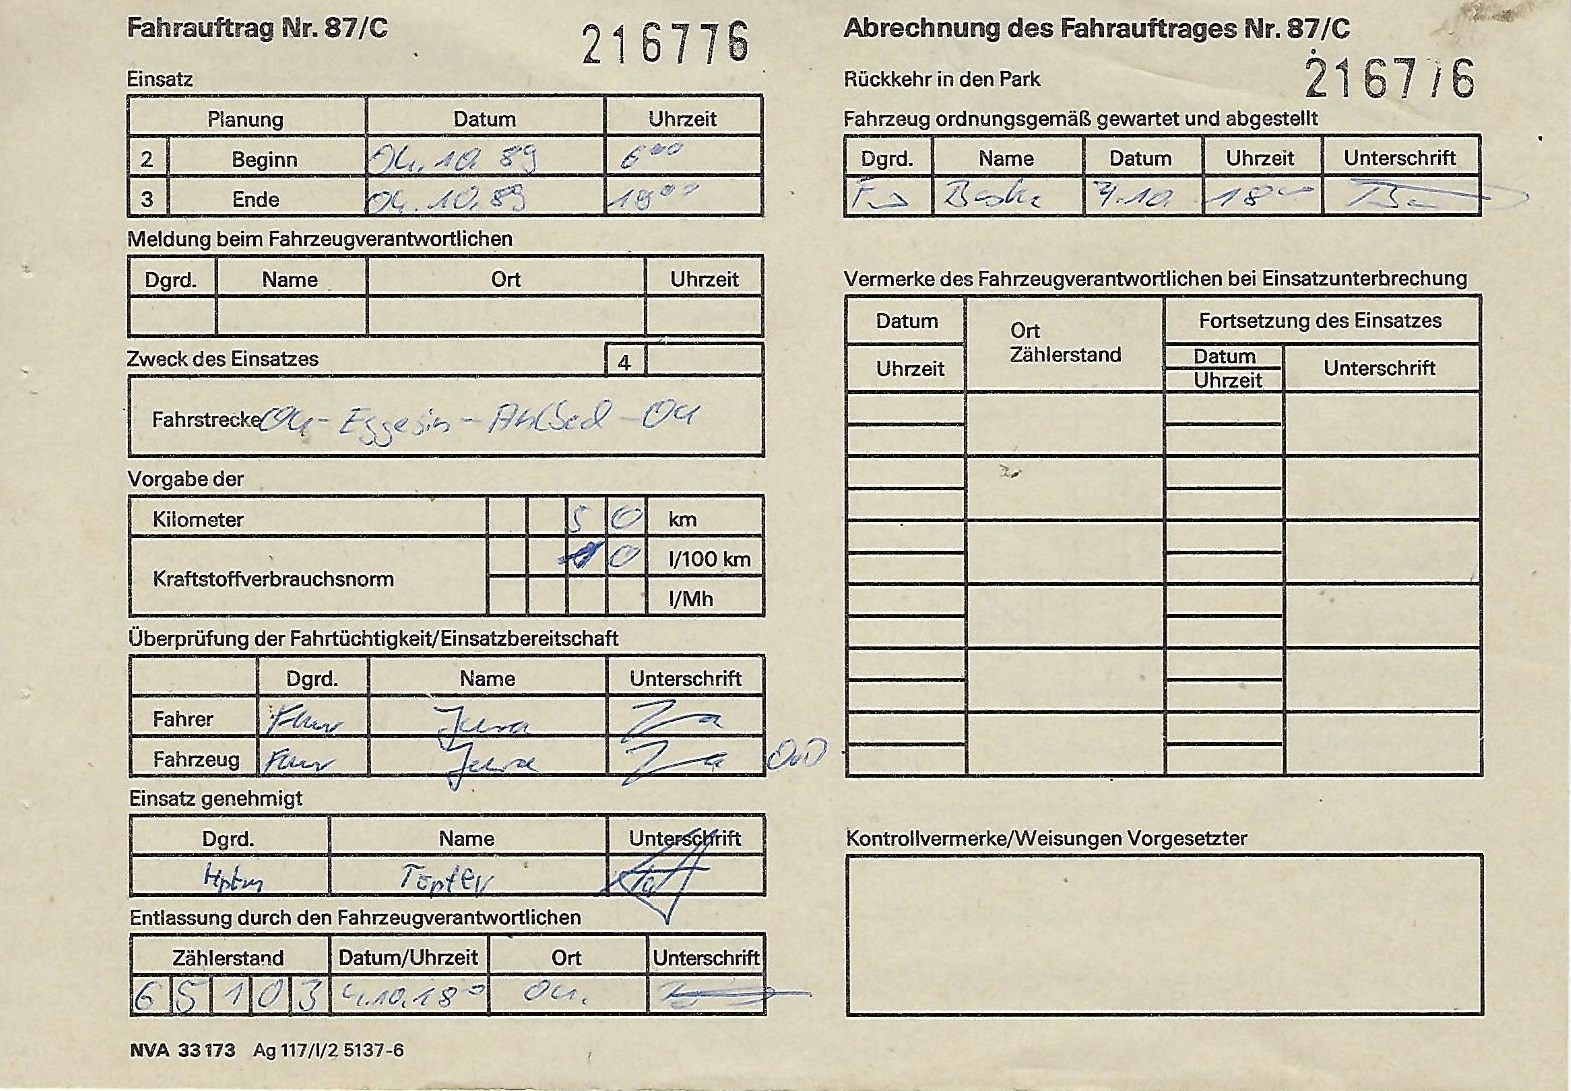 Fahrauftrag Nr. 87/C
216776
Einsatz
Planung Datum Uhrzeit
2 Beginn 04.10.89 6⁰⁰
3 Ende 04.10.89 18⁰⁰
Meldung beim Fahrzeugverantwortlichen
Dgrd. Name Ort Uhrzeit
Zweck des Einsatzes 4
Fahrstrecke - Eggesin -
Vorgabe der
Kilometer 50 km
Kraftstoffverbrauchsnorm 0 l/100 km
l/Mh
Überprüfung der Fahrtüchtigkeit/Einsatzbereitschaft
Dgrd. Name Unterschrift
Fahrer
Fahrzeug OvD
Einsatz genehmigt
Dgrd. Name Unterschrift
Hptm Töpfer
Entlassung durch den Fahrzeugverantwortlichen
Zählerstand Datum/Uhrzeit Ort Unterschrift
65103 4.10.18⁰⁰
NVA 33 173 Ag 117/I/2 5137-6
Abrechnung des Fahrauftrages Nr. 87/C
216776
Rückkehr in den Park
Fahrzeug ordnungsgemäß gewartet und abgestellt
Dgrd. Name Datum Uhrzeit Unterschrift
4.10 18
Vermerke des Fahrzeugverantwortlichen bei Einsatzunterbrechung
Datum Ort Fortsetzung des Einsatzes
Uhrzeit Zählerstand Datum Unterschrift
Uhrzeit
Kontrollvermerke/Weisungen Vorgesetzter